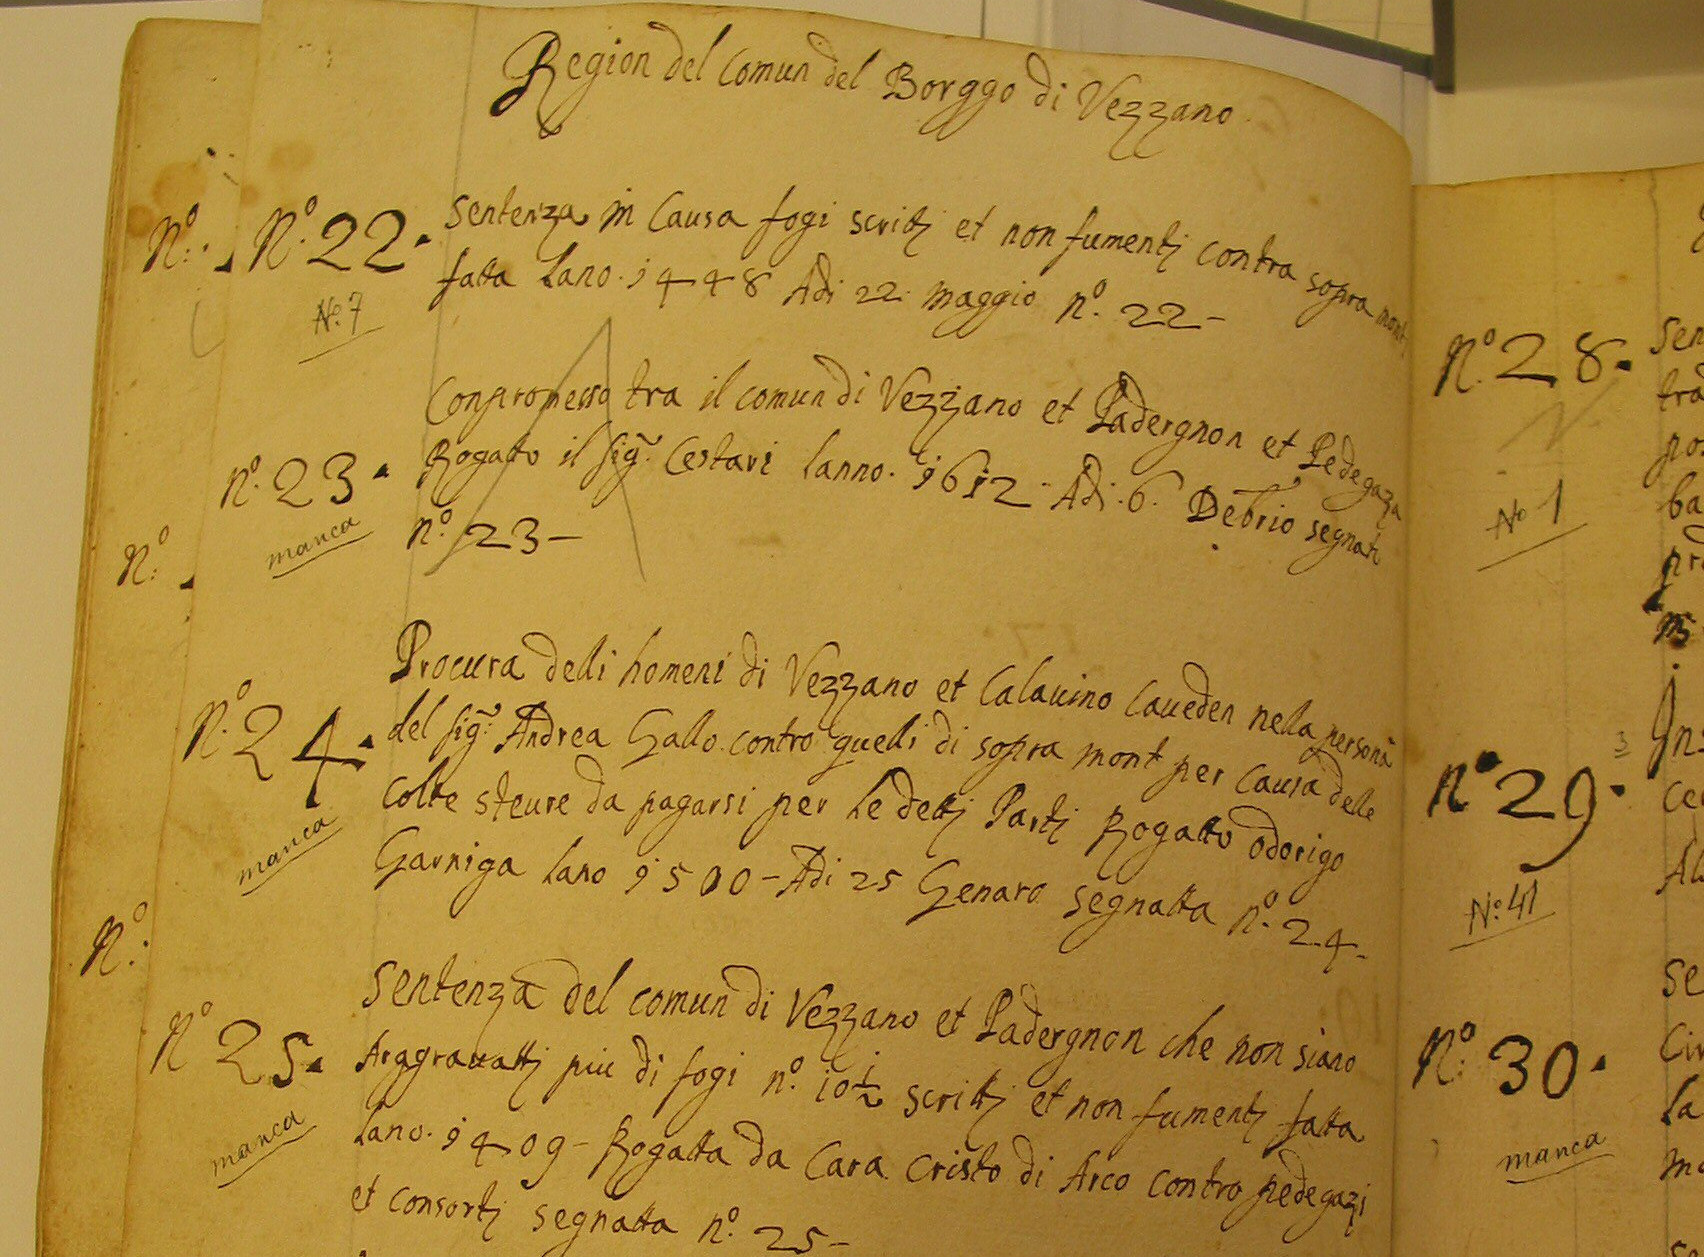 Region del Comun del Borggo di Vezzano
Nº 22. Sentenza in Causa fogi scritti et non fumenti contra sopra monti
fatta Lano. 1448 Adi 22 maggio nº. 22-
Nº. 7
Conpromesso tra il comun di Vezzano et Padergnon et Pedegaza
nº. 23. Rogatto il sigr. Cestari Lanno. 1612. Adi. 6. Debrio segnati
nº. 23-
manca
Procura delli homeni di Vezzano et Calavino Caveden nella persona
nº. 24. del sigr. Andrea Gallo contro quelli di sopra mont per Causa delle
Colte steure da pagarsi per Le detti Parti Rogatto odorigo
manca
Garniga Lano 1500- Adi 25 Genaro segnatta nº. 24-
Sentenza del comun di Vezzano et Padergnon che non siano
nº 25. Aragravatti piu di fogi nº. 10½ scritti et non fumenti fatta
Lano. 1409- Rogatta da Cara Cristo di Arco contro pedegazi
manca
et consorti segnatta nº. 25-
Nº:
nº:
nº:
nº. 28.
Nº 1
nº 29.
Nº. 41
nº: 30.
manca